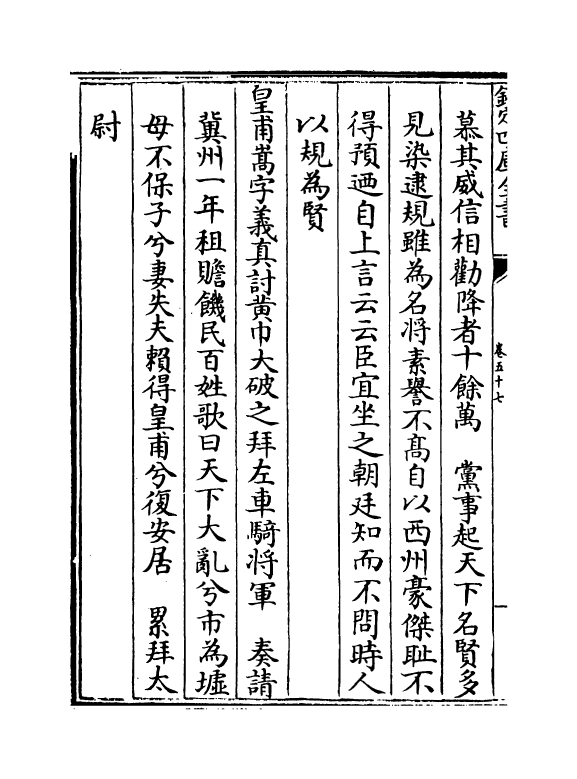 欽定四庫全書
卷五十七
慕其威信相勸降者十餘萬　黨事起天下名賢多
見染逮規雖為名將素譽不高自以西州豪傑耻不
得預廼自上言云云臣宜坐之朝廷知而不問時人
以規為賢
皇甫嵩字義真討黄巾大破之拜左車騎将軍　奏請
冀州一年租贍饑民百姓歌曰天下大亂兮市為墟
母不保子兮妻失夫賴得皇甫兮復安居　累拜太
尉